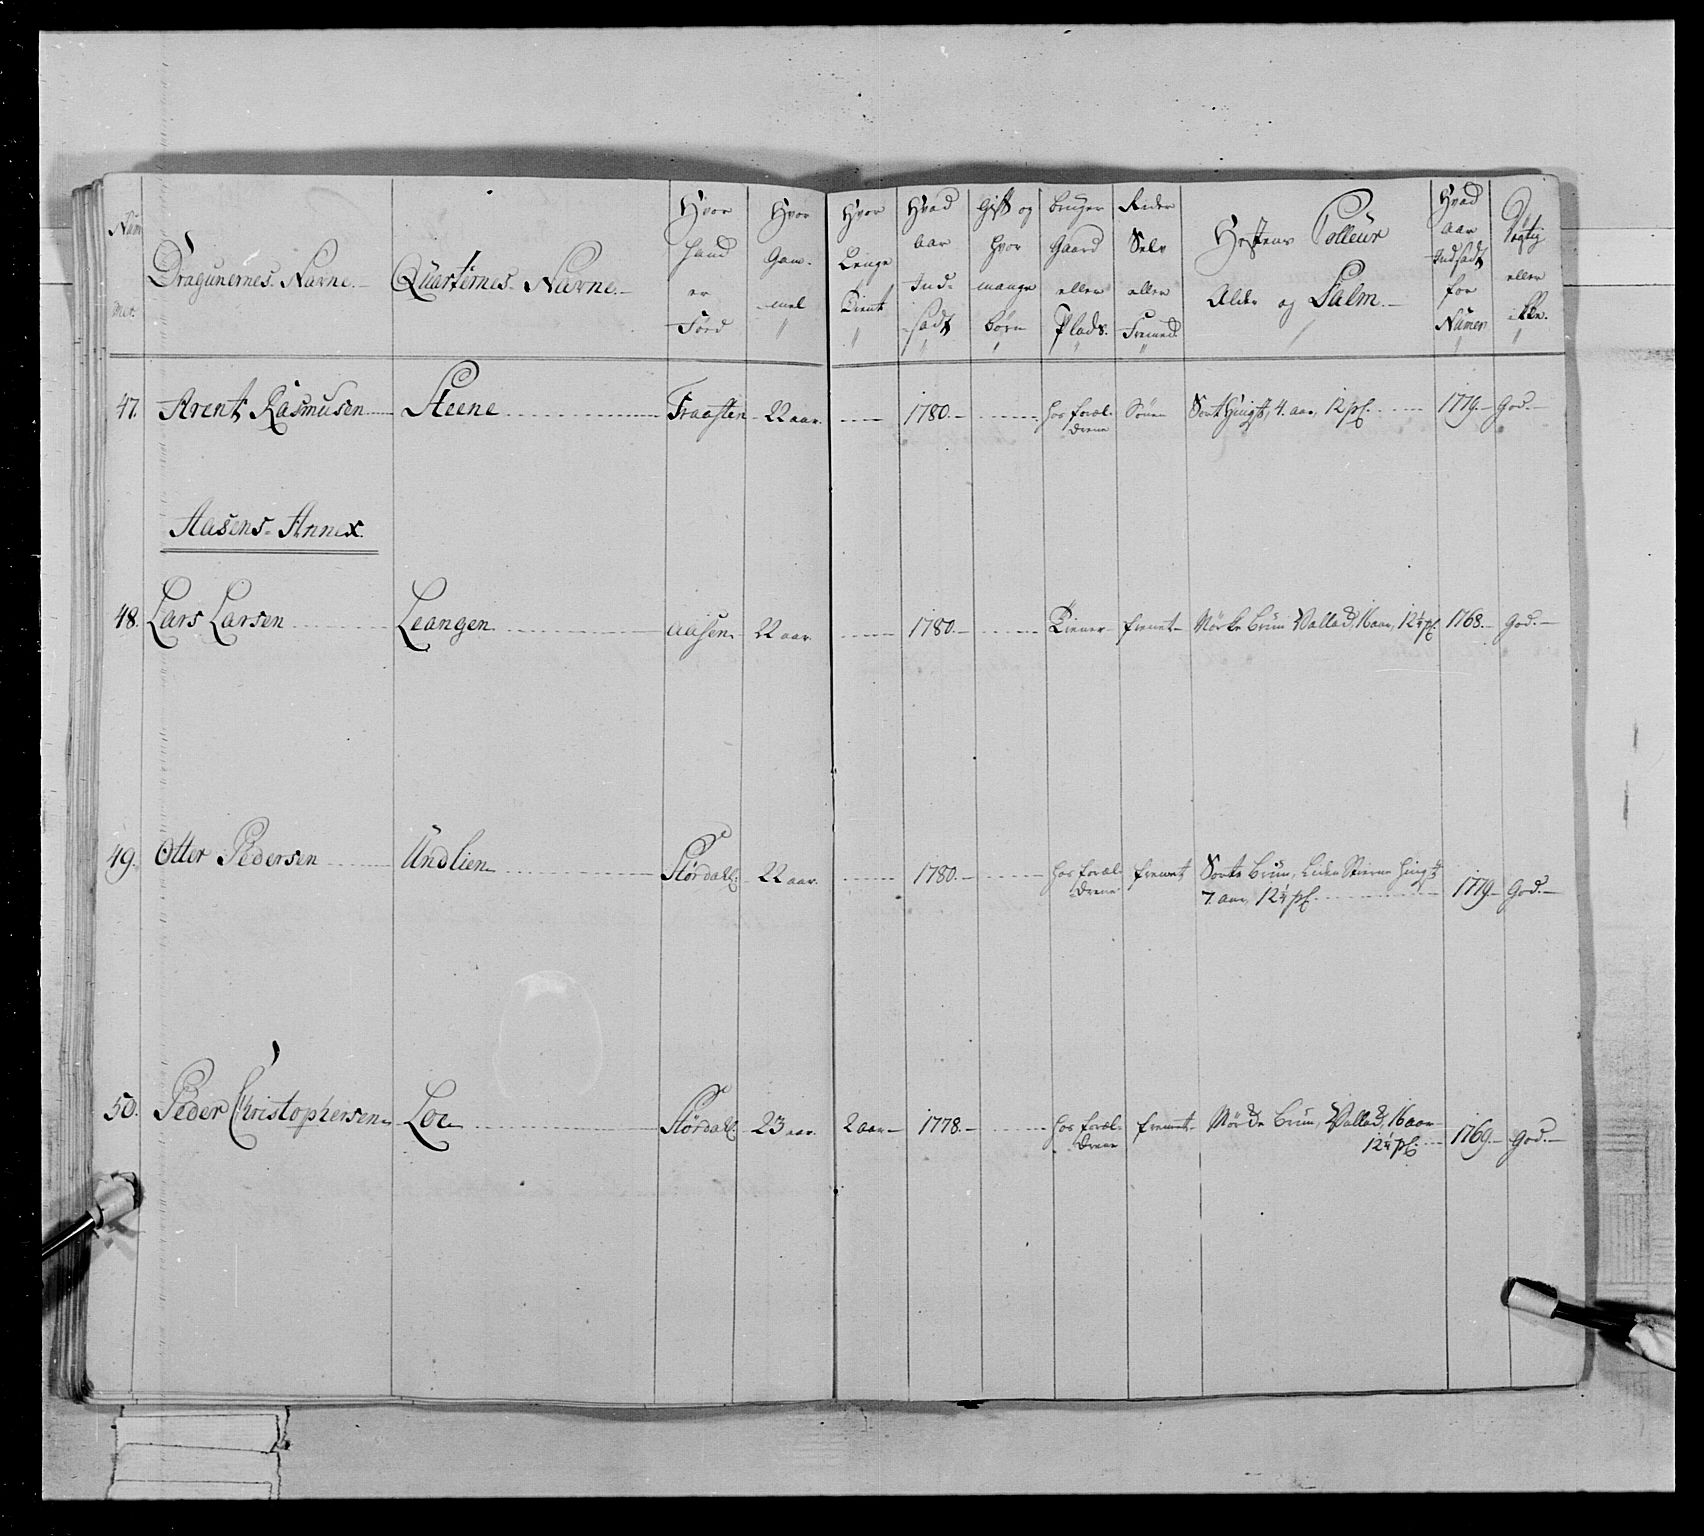 Num
mer.
Dragunernes Navne.
Quarternes Navne.
Hvor
hand
er
Född
Hvor
Gam-
mel
Hvor
Lenge
Tient
Hvad
aar
Ind-
sadt
Gift og
hvor
mange
börn
bruger
Gaard
eller
Plads.
Rider
Selv
eller
Fremed
Hestens Colleur
Alder og Palm.
Hvad
aar
Indsadt
for
Numer
Dygtig
eller
ikke.
47. Arent Rasmusen Steene Fraasten 22 aar. 1780. hos foræl- Sönn Sort hingst, 4. aar, 12 pf. 1779. God.
drene
Aasens Annex.
48. Lars Larsen Leangen aasen 22 aar 1780. Tiener fremet Mörke brun Vallad, 16 aar, 12¼ pf. 1768. God.
49. Otter Pedersen Undlien Störda​ll. 22 aar. 1780. hos foræl- fremet Sorte brun, liden Stierne hingst
drene 7. aar, 12¼ pf. 1779 God.
50. Peder Christophersen Loe Stördall. 23 aar. 2 aar 1778. hos foræl- fremet Mörke brun, Vallad, 16 aar
drene 12¼ pf. 1769. God.